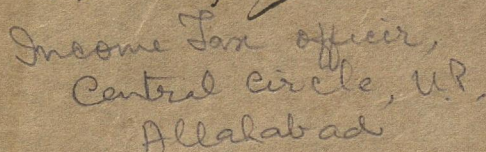 Income Tax officer,
Central Circle, U.P.
Allahabad